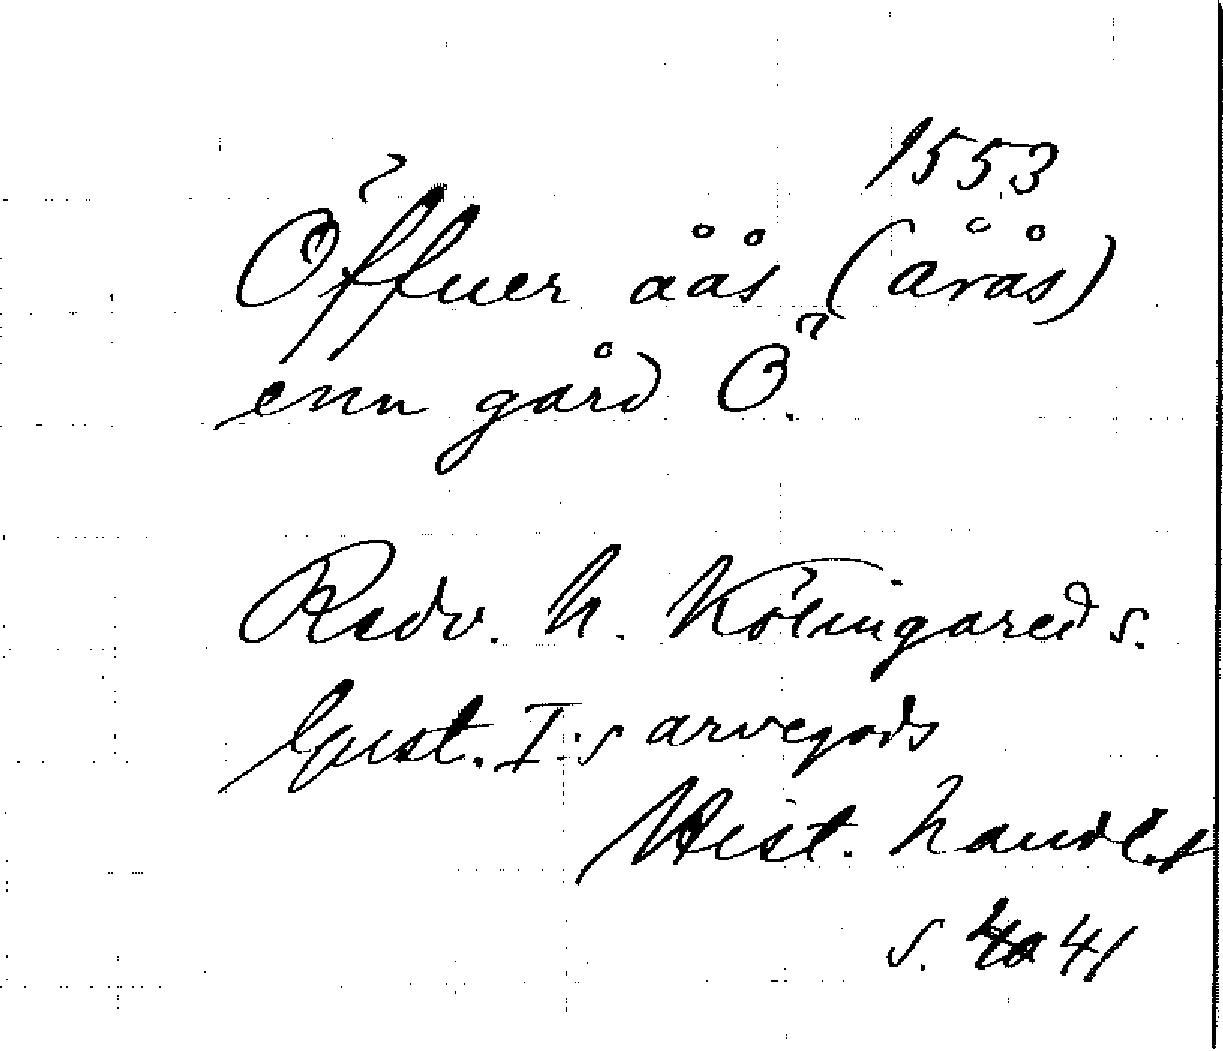 1553
Öffuer åås (årås)
enn gård Ö.
Redv. h. Kölingareds s.
Gust. I.s arvegods
Hist. handl.
s. 41